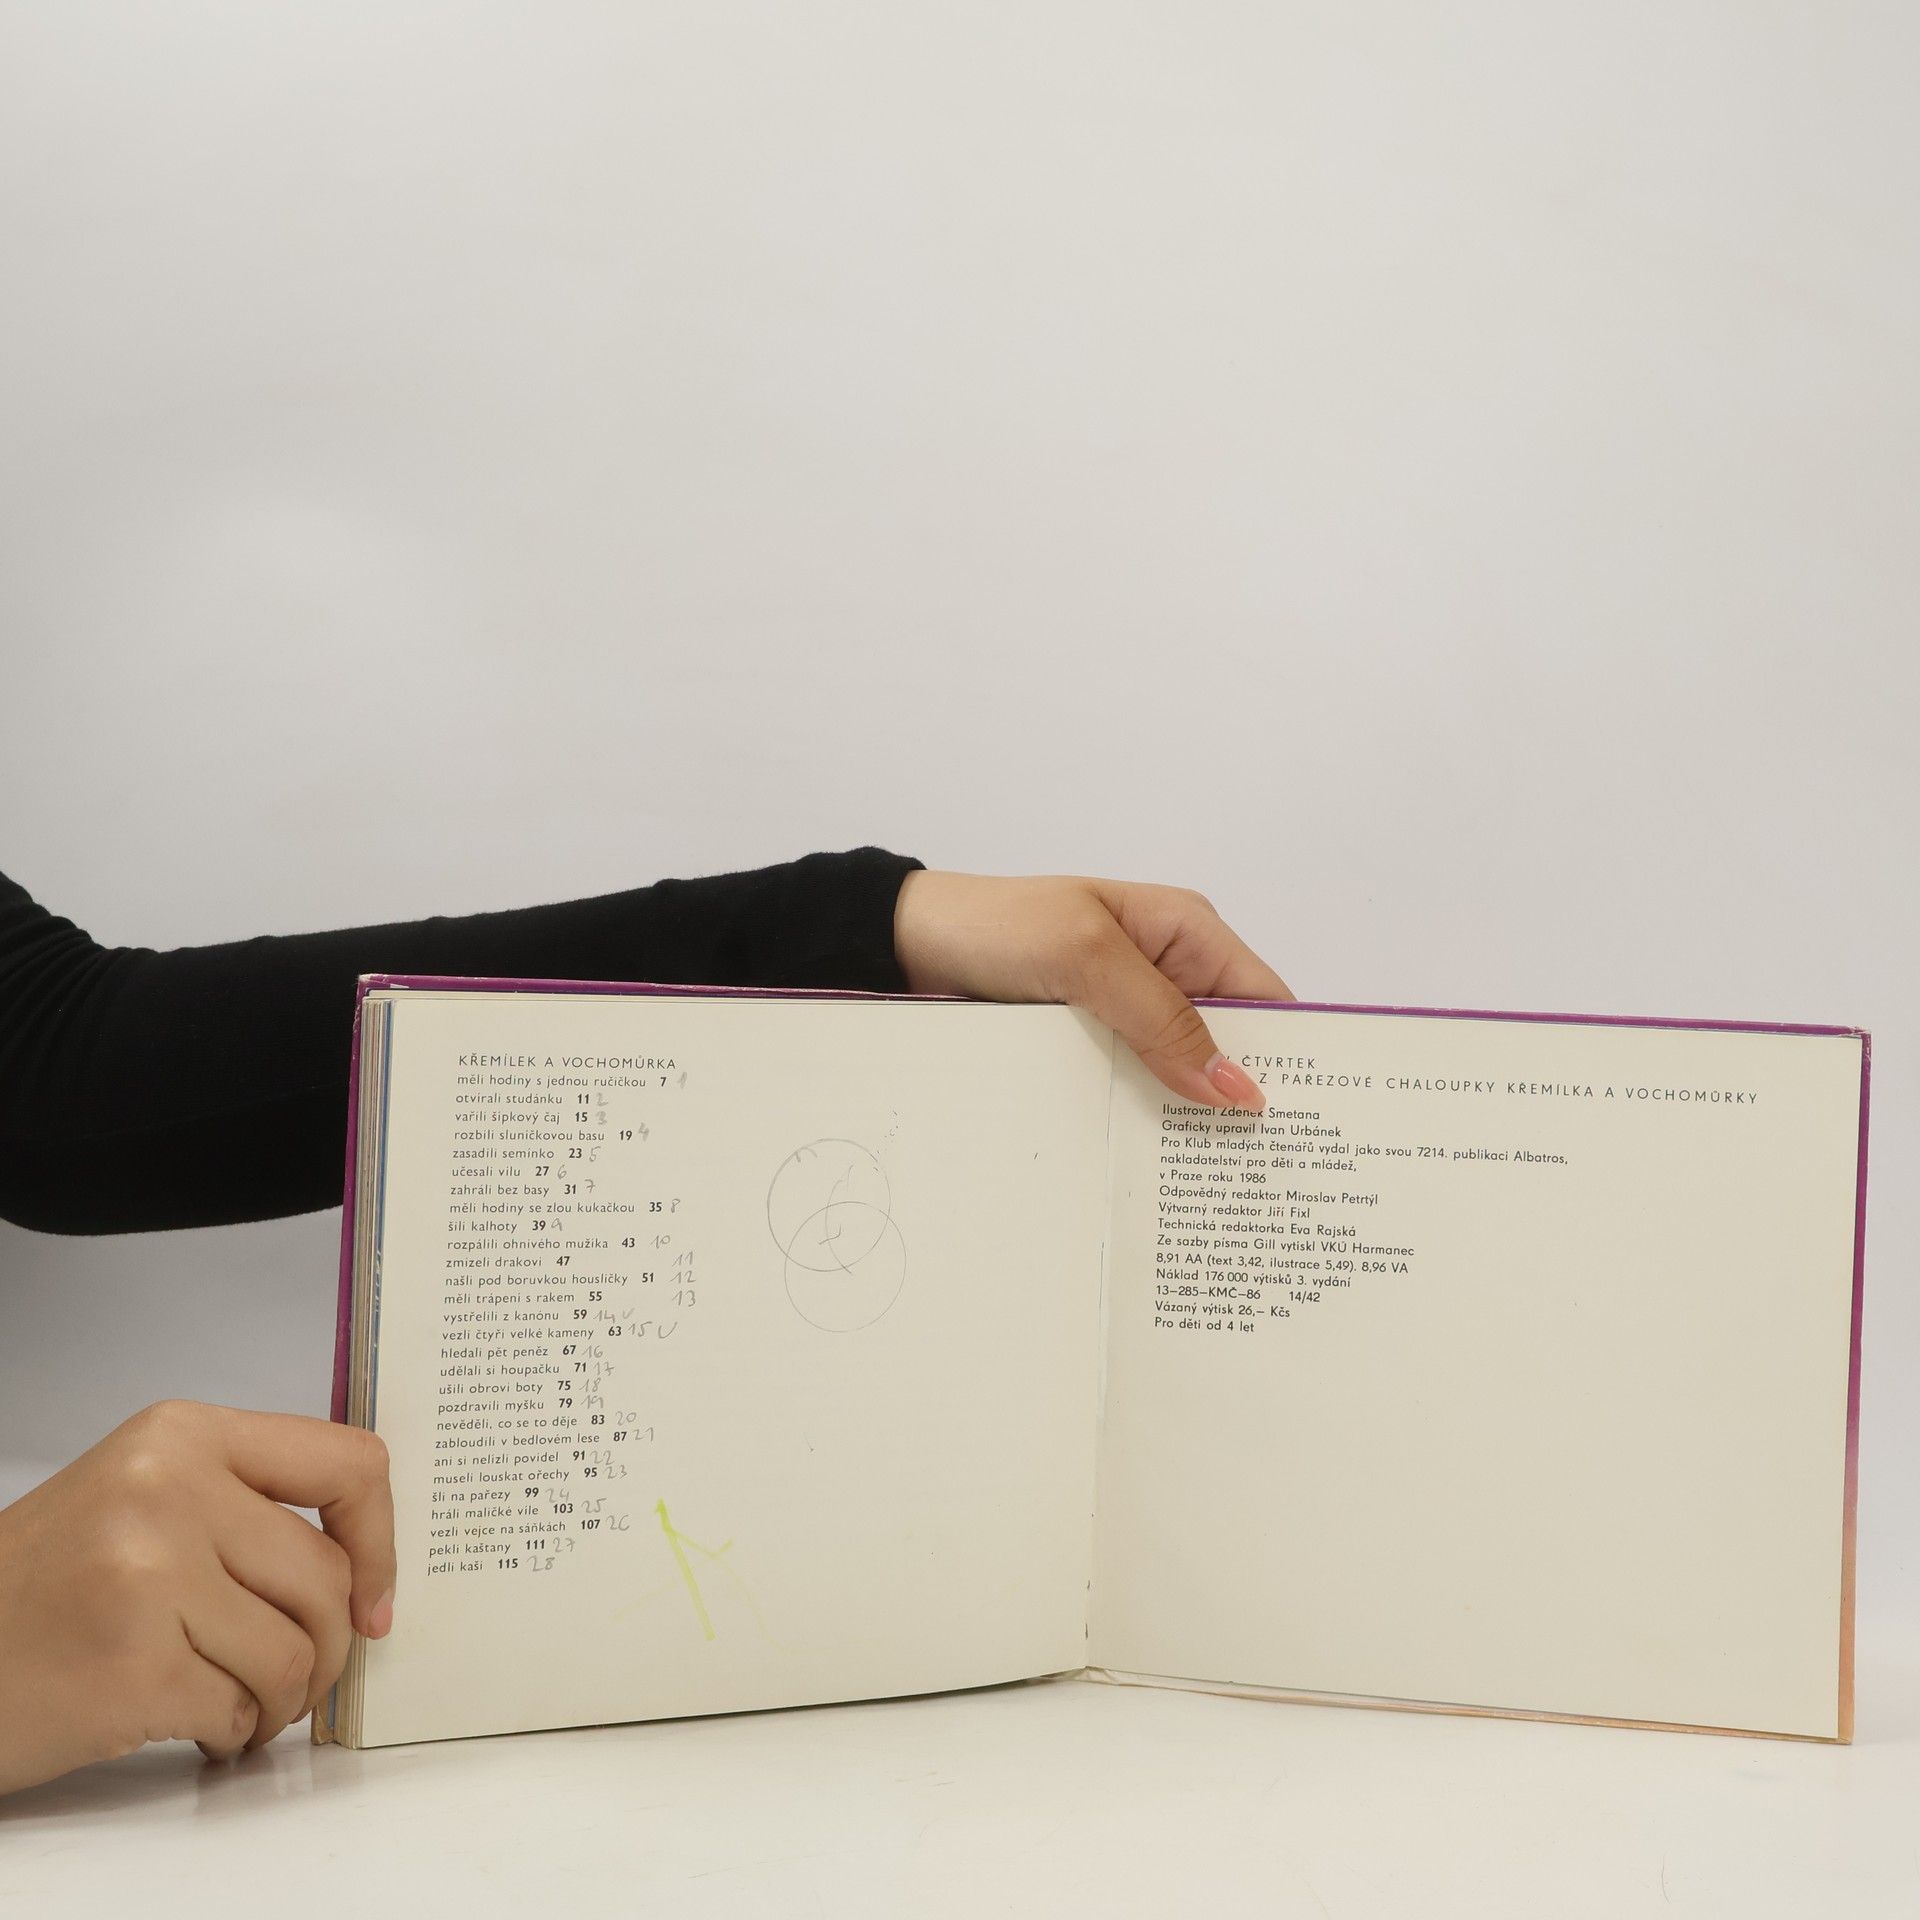 KŘEMÍLEK A VOCHOMŮRKA
měli hodiny s jednou ručičkou 7 1
otvírali studánku 11 2
vařili šípkový čaj 15 3
rozbili sluníčkovou basu 19 4
zasadili semínko 23 5
učesali vílu 27 6
zahráli bez basy 31 7
měli hodiny se zlou kukačkou 35 8
šili kalhoty 39 9
rozpálili ohnivého mužíka 43 10
zmizeli drakovi 47 11
našli pod borůvkou housličky 51 12
měli trápení s rakem 55 13
vystřelili z kanónu 59 14
vezli čtyři velké kameny 63 15
hledali pět peněz 67 16
udělali si houpačku 71 17
ušili obrovi boty 75 18
pozdravili myšku 79 19
nevěděli, co se to děje 83 20
zabloudili v bedlovém lese 87 21
ani si nelízli povidel 91 22
museli louskat ořechy 95 23
šli na pařezy 99 24
hráli maličké víle 103 25
vezli vejce na sáňkách 107 26
pekli kaštany 111 27
jedli kaši 115 28
ČTVRTEK
Z PAŘEZOVÉ CHALOUPKY KŘEMÍLKA A VOCHOMŮRKY
Ilustroval Zdeněk Smetana
Graficky upravil Ivan Urbánek
Pro Klub mladých čtenářů vydal jako svou 7214. publikaci Albatros,
nakladatelství pro děti a mládež,
v Praze roku 1986
Odpovědný redaktor Miroslav Petrtýl
Výtvarný redaktor Jiří Fixl
Technická redaktorka Eva Rajská
Ze sazby písma Gill vytiskl VKÚ Harmanec
8,91 AA (text 3,42, ilustrace 5,49). 8,96 VA
Náklad 176 000 výtisků 3. vydání
13–285–KMČ–86 14/42
Vázaný výtisk 26,– Kčs
Pro děti od 4 let